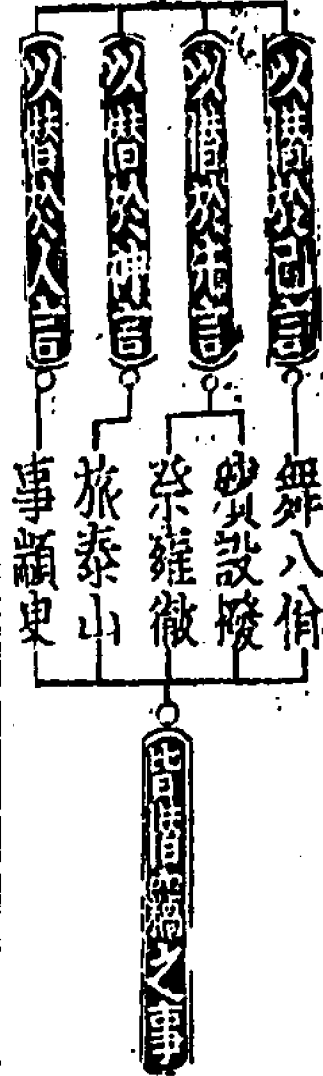 以僭於己言
以僭於先言
以僭於神言
以僭於人言
舞八佾
殯設撥
祭雍徹
旅泰山
事顓臾
皆僭竊之事